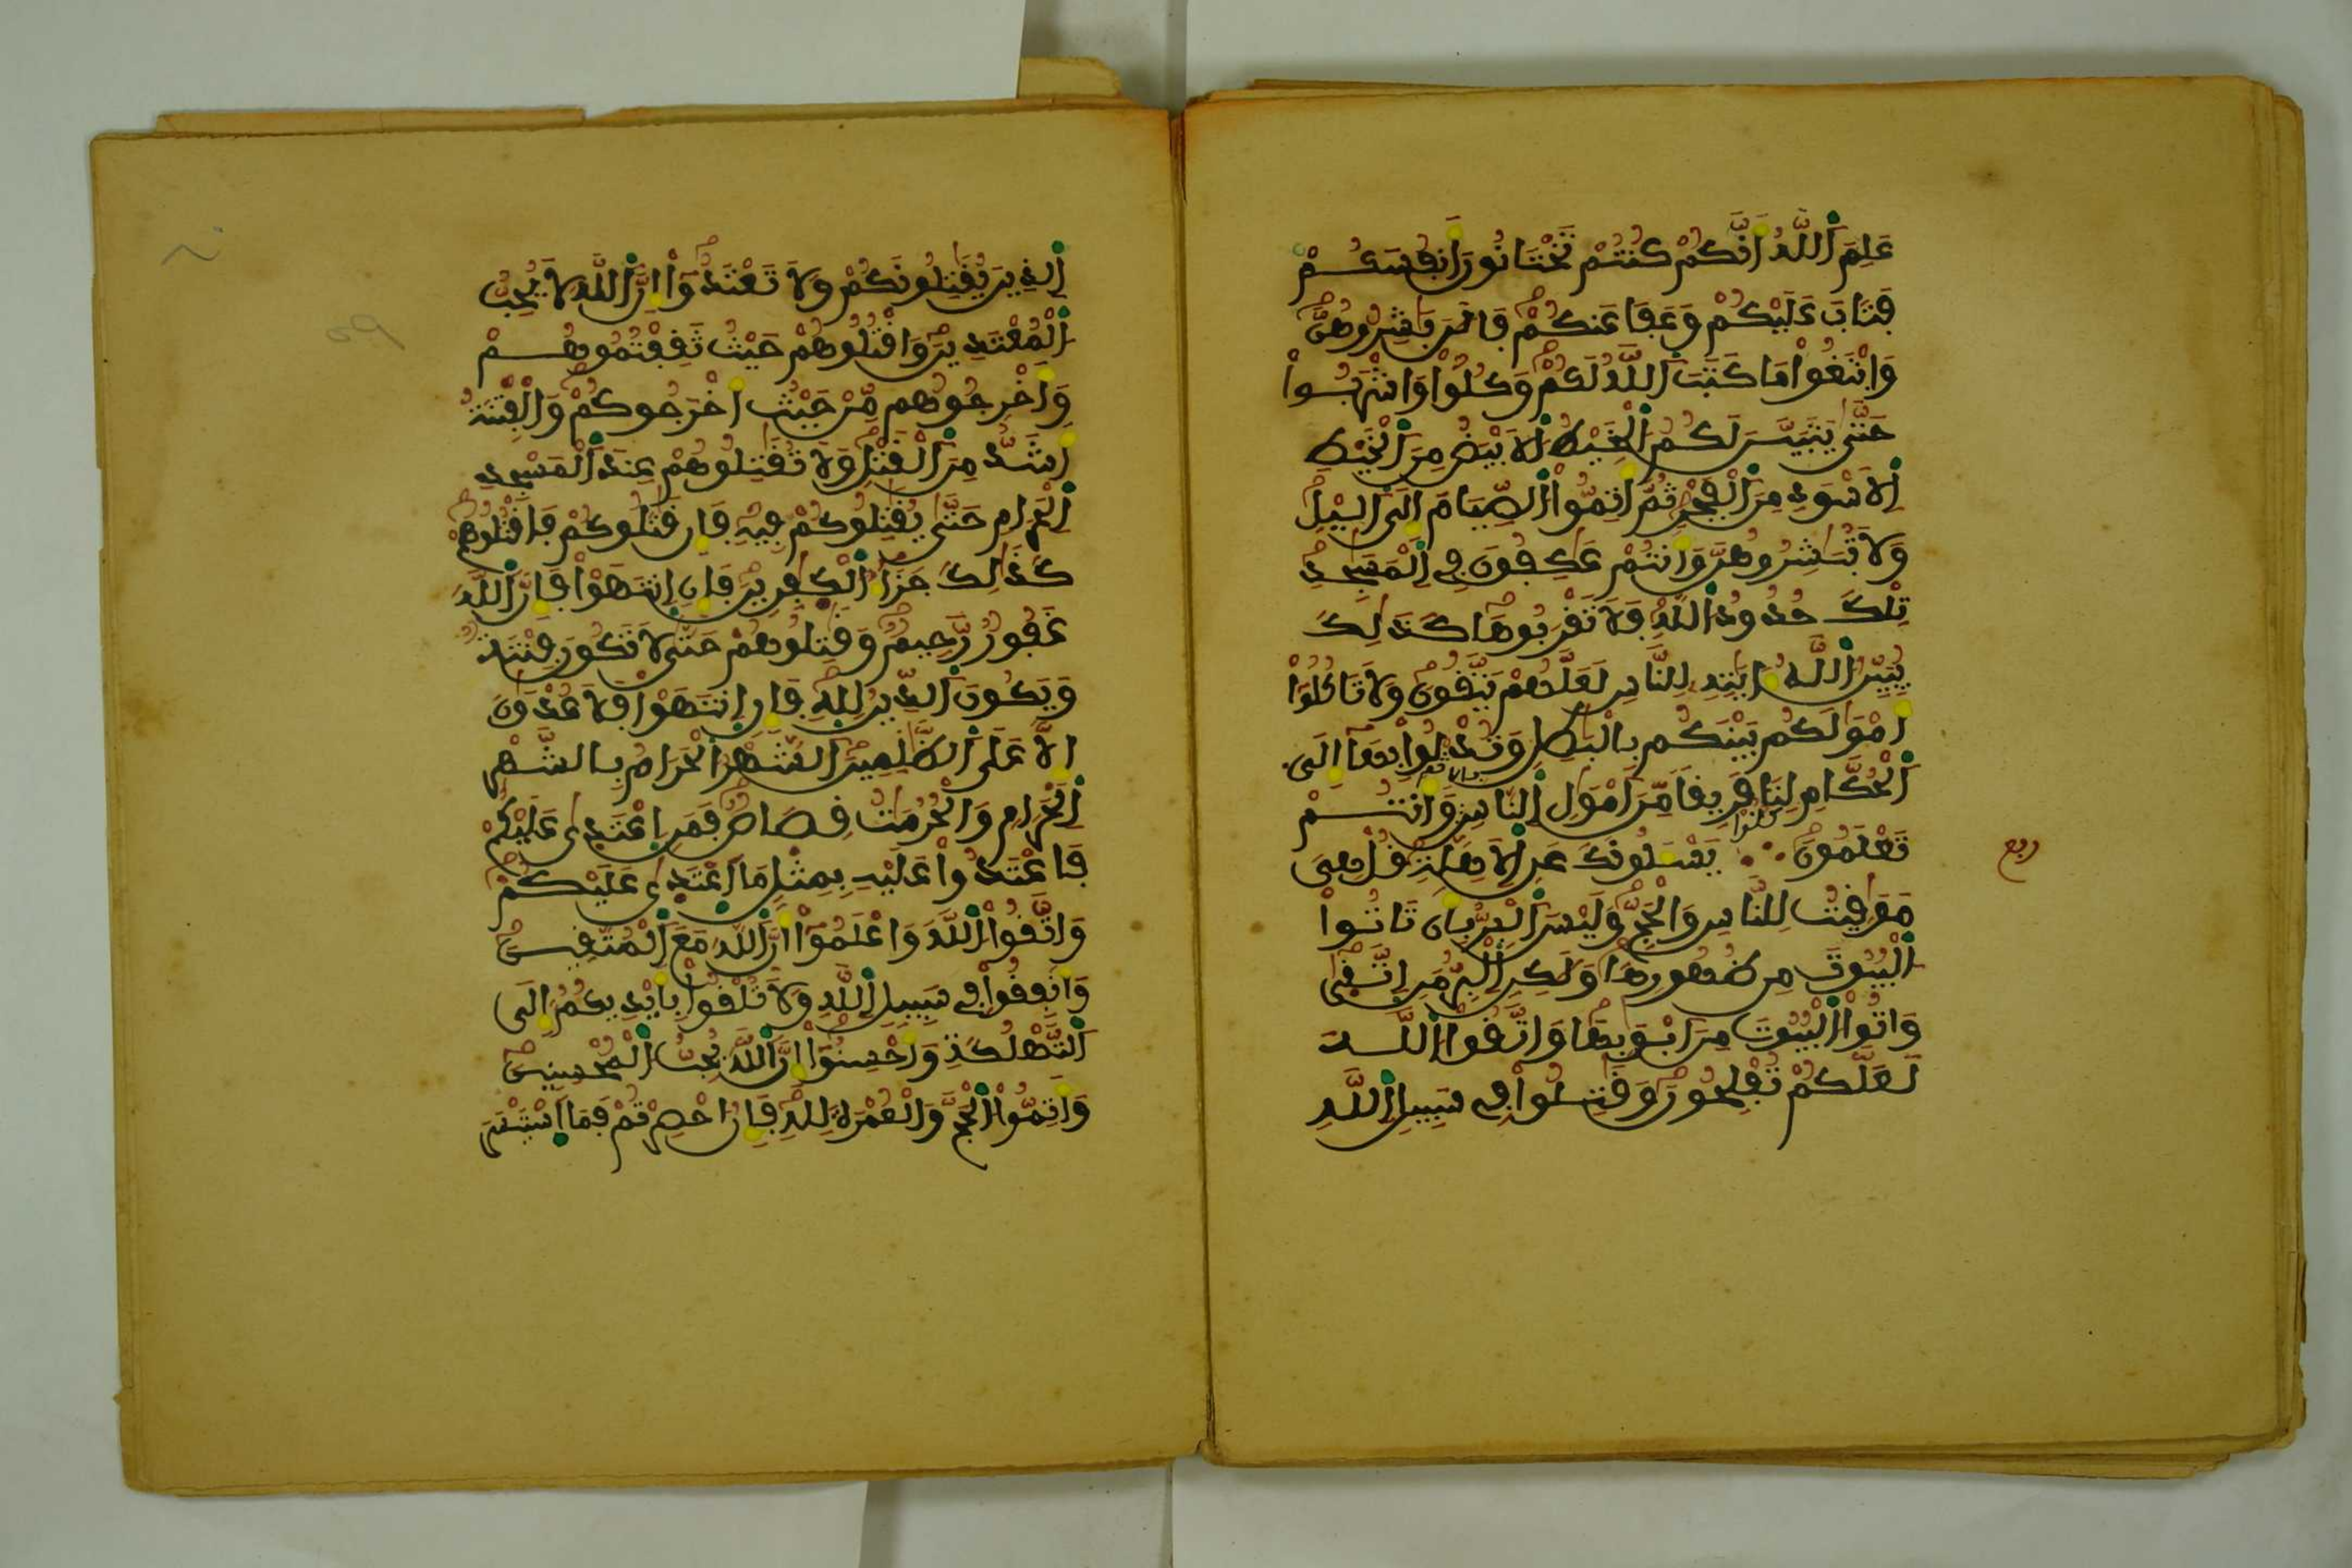 عَلِمَ اَ۬للَّهُ أَنَّكُمْ كُنتُمْ تَخْتَانُونَ أَنفُسَكُمْ
فَتَابَ عَلَيْكُمْ وَعَفَا عَنكُمْ فَالَٰنَ بَٰشِرُوهُنَّ
وَابْتَغُواْ مَا كَتَبَ اَ۬للَّهُ لَكُمْ وَكُلُواْ وَاشْرَبُواْ
حَتَّىٰ يَتَبَيَّنَ لَكُمُ اُ۬لْخَيْطُ اُ۬لَابْيَضُ مِنَ اَ۬لْخَيْطِ
اِ۬لَاسْوَدِ مِنَ اَ۬لْفَجْرِ ثُمَّ أَتِمُّواْ اُ۬لصِّيَامَ إِلَى اَ۬ليْلِ
وَلَا تُبَٰشِرُوهُنَّ وَأَنتُمْ عَٰكِفُونَ فِي اِ۬لْمَسَٰجِدِ
تِلْكَ حُدُودُ اُ۬للَّهِ فَلَا تَقْرَبُوهَا كَذَٰلِكَ
يُبَيِّنُ اُ۬للَّهُ ءَايَٰتِهِ لِلنَّاسِ لَعَلَّهُمْ يَتَّقُونَ وَلَا تَاكُلُواْ
أَمْوَٰلَكُم بَيْنَكُم بِالْبَٰطِلِ وَتُدْلُواْ بِهَا إِلَى
اَ۬لْحُكَّامِ لِتَاكُلُواْ فَرِيقاً مِّنَ اَمْوَٰلِ اِ۬لنَّاسِ بِالاثم وَأَنتُمْ
تَعْلَمُونَ يَسْـَٔلُونَكَ عَنِ اِ۬لَاهِلَّةِ قُلْ هِيَ
مَوَٰقِيتُ لِلنَّاسِ وَالْحَجِّ وَلَيْسَ اَ۬لْبِرُّ بِأَن تَاتُواْ
اُ۬لْبُيُوتَ مِن ظُهُورِهَا وَلَٰكِنِ اِ۬لْبِرُّ مَنِ اِ۪تَّقَىٰ
وَاتُواْ اُ۬لْبُيُوتَ مِنَ اَبْوَٰبِهَا وَاتَّقُواْ اُ۬للَّهَ
لَعَلَّكُمْ تُفْلِحُونَ وَقَٰتِلُواْ فِي سَبِيلِ اِ۬للَّهِ
ربع
اِ۬لذِينَ يُقَٰتِلُونَكُمْ وَلَا تَعْتَدُواْ إِنَّ اَ۬للَّهَ لَا يُحِبُّ
اُ۬لْمُعْتَدِينَ وَاقْتُلُوهُمْ حَيْثُ ثَقِفْتُمُوهُمْ
وَأَخْرِجُوهُم مِّنْ حَيْثُ أَخْرَجُوكُمْ وَالْفِتْنَةُ
أَشَدُّ مِنَ اَ۬لْقَتْلِ وَلَا تُقَٰتِلُوهُمْ عِندَ اَ۬لْمَسْجِدِ
اِ۬لْحَرَامِ حَتَّىٰ يُقَٰتِلُوكُمْ فِيهِ فَإِن قَٰتَلُوكُمْ فَاقْتُلُوهُمْ
كَذَٰلِكَ جَزَآءُ اُ۬لْكَٰفِرِينَ فَإِنِ اِ۪نتَهَوْاْ فَإِنَّ اَ۬للَّهَ
غَفُورٌ رَّحِيمٌ وَقَٰتِلُوهُمْ حَتَّىٰ لَا تَكُونَ فِتْنَةٌ
وَيَكُونَ اَ۬لدِّينُ لِلهِ فَإِنِ اِ۪نتَهَوْاْ فَلَا عُدْوَٰنَ
إِلَّا عَلَى اَ۬لظَّٰلِمِينَ اَ۬لشَّهْرُ اُ۬لْحَرَامُ بِالشَّهْرِ
اِ۬لْحَرَامِ وَالْحُرُمَٰتُ قِصَاصٌ فَمَنِ اِ۪عْتَدَىٰ عَلَيْكُمْ
فَاعْتَدُواْ عَلَيْهِ بِمِثْلِ مَا اَ۪عْتَدَىٰ عَلَيْكُمْ
وَاتَّقُواْ اُ۬للَّهَ وَاعْلَمُواْ أَنَّ اَ۬للَّهَ مَعَ اَ۬لْمُتَّقِينَ
وَأَنفِقُواْ فِي سَبِيلِ اِ۬للَّهِ وَلَا تُلْقُواْ بِأَيْدِيكُمُ إِلَى
اَ۬لتَّهْلُكَةِ وَأَحْسِنُواْ إِنَّ اَ۬للَّهَ يُحِبُّ اُ۬لْمُحْسِنِينَ
وَأَتِمُّواْ اُ۬لْحَجَّ وَالْعُمْرَةَ لِلهِ فَإِنُ احْصِرْتُمْ فَمَا اَ۪سْتَيْسَرَ